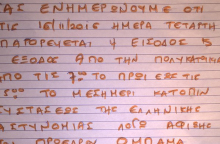 ΣΑΣ ΕΝΗΜΕΡΩΝΟΥΜΕ ΟΤΙ
ΤΙΣ 16/11/2016 ΗΜΕΡΑ ΤΕΤΑΡΤΗ
ΑΠΑΓΟΡΕΥΕΤΑΙ Η ΕΙΣΟΔΟΣ
ΕΞΟΔΟΣ ΑΠΟ ΤΗΝ ΠΟΛΥΚΑΤΟΙΚΙΑ
ΑΠΟ ΤΙΣ 7:00 ΤΟ ΠΡΩΙ ΕΩΣ ΤΙΣ
15:00 ΤΟ ΜΕΣΗΜΕΡΙ ΚΑΤΟΠΙΝ
ΣΥΣΤΑΣΕΩΣ ΤΗΣ ΕΛΛΗΝΙΚΗΣ
ΑΣΤΥΝΟΜΙΑΣ ΛΟΓΩ ΑΦΙΞΗΣ
ΠΡΟΕΔΡΟΥ ΟΜΠΑΜΑ